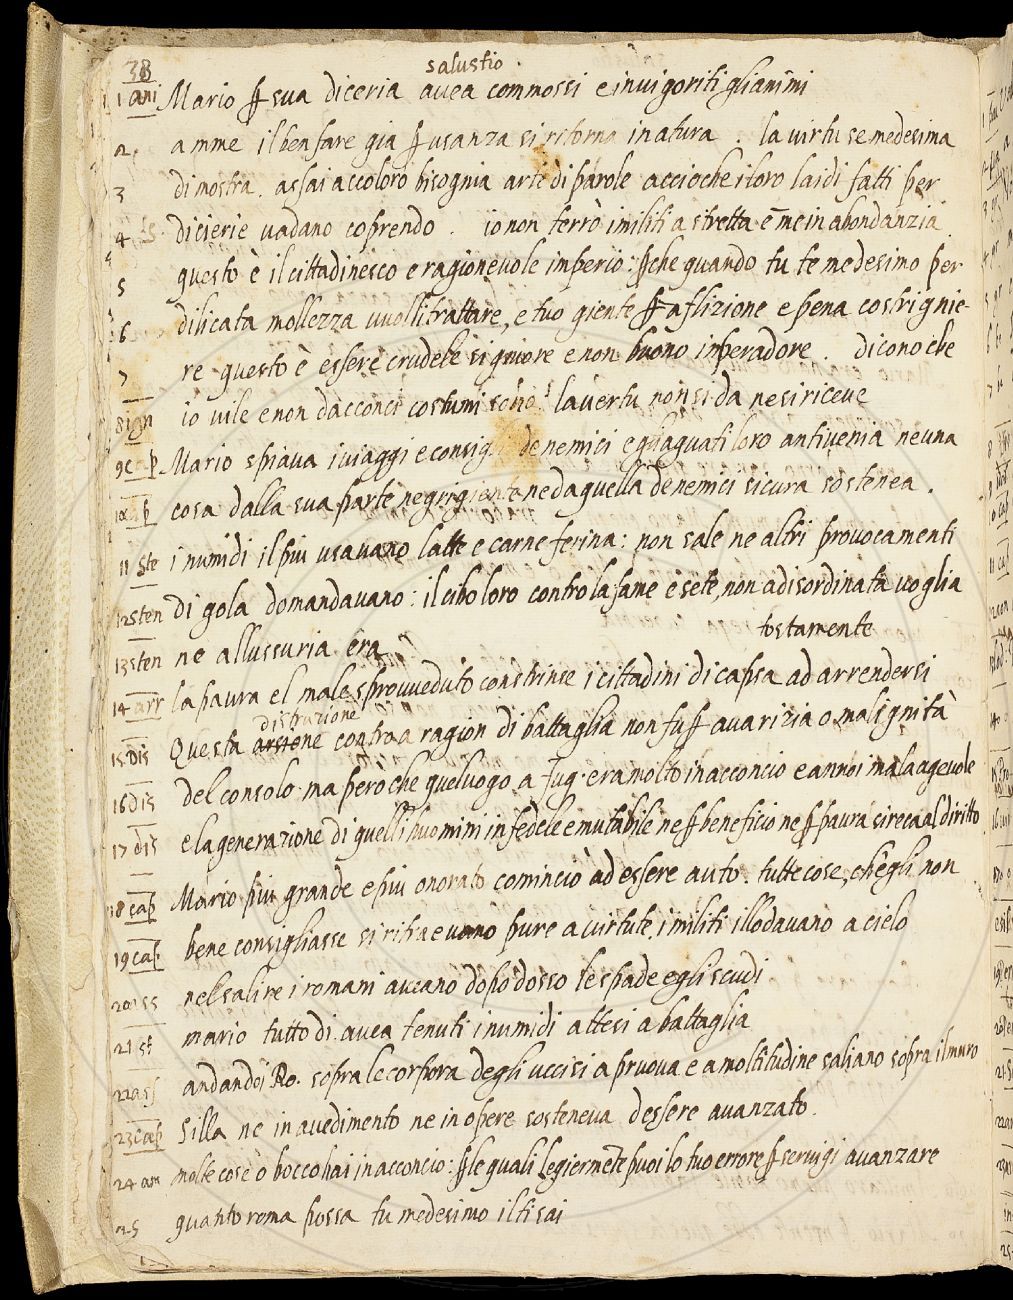 38
salustio.
1 ani Mario p sua diceria avea commossi e invigoriti gli animi
2. amme il ben fare gia p usanza si ritorna inatura . la virtu se medesima
3 dimostra . assai accoloro bisognia arte di parole accioche i loro laidi fatti per
4 dicierie vadano coprendo . io non terrò i militi a stretta e me in abondanzia
5 questo è il cittadinesco e ragionevole imperio : pche quando tu te medesimo per
6 dilicata mollezza vuolli trattare, e tuo giente p aflizione e pena costrignie-
7 re questo è essere crudele signiore e non buono inperadore . dicono che
8 ign io vile e non dacconci costumi sono la vertu non si da ne si riceve
9 Mario spiava i viaggi e consigli de nemici e gli aguati loro antivenia neuna
10 cosa dalla sua parte negrigiente ne da quella de nemici sicura sostenea .
11 ste i numidi il piu usavano latte e carne ferina : non sale ne altri provocamenti
12 sten di gola domandavano : il cibo loro contro la fame e sete, non a disordinata voglia
13 sten ne allussuria era
tostamente
14 arr la paura el male sprovveduto constrinse i cittadini di capsa ad arrendersi
distruzione
15 dis Questa arsione contro a ragion di battaglia non fu p avarizia o malignità
16 dis del consolo . ma però che quel luogo a Jug. era molto inacconcio e annoi malaagevole
17 dis e la generazione di quelli huomini infedele e mutabile ne p beneficio ne p paura si reca al diritto
18 cap Mario piu grande e piu onorato cominciò ad essere auto . tutte cose, ch'egli non
19 cap bene consigliasse si ritraevano pure a virtute, i militi il lodavano a cielo
20 nel salire i romani aveano dopo dosso le spade e gli scudi
21 mario tutto di avea tenuti i numidi attesi a battaglia
22 andando i Ro. sopra le corpora degli uccisi a pruova e a moltitudine saliano sopra il muro
23 cap Silla ne in avedimento ne in opere sosteneva dessere avanzato.
24 am molte cose o boccho hai inacconcio : p le quali legiermete puoi lo tuo errore p servigi avanzare
25 quanto roma possa tu medesimo il ti sai